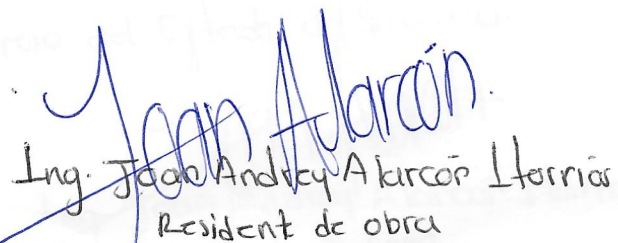 Joan Alarcón.
Ing. Joan Andrey Alarcón
Resident de obra